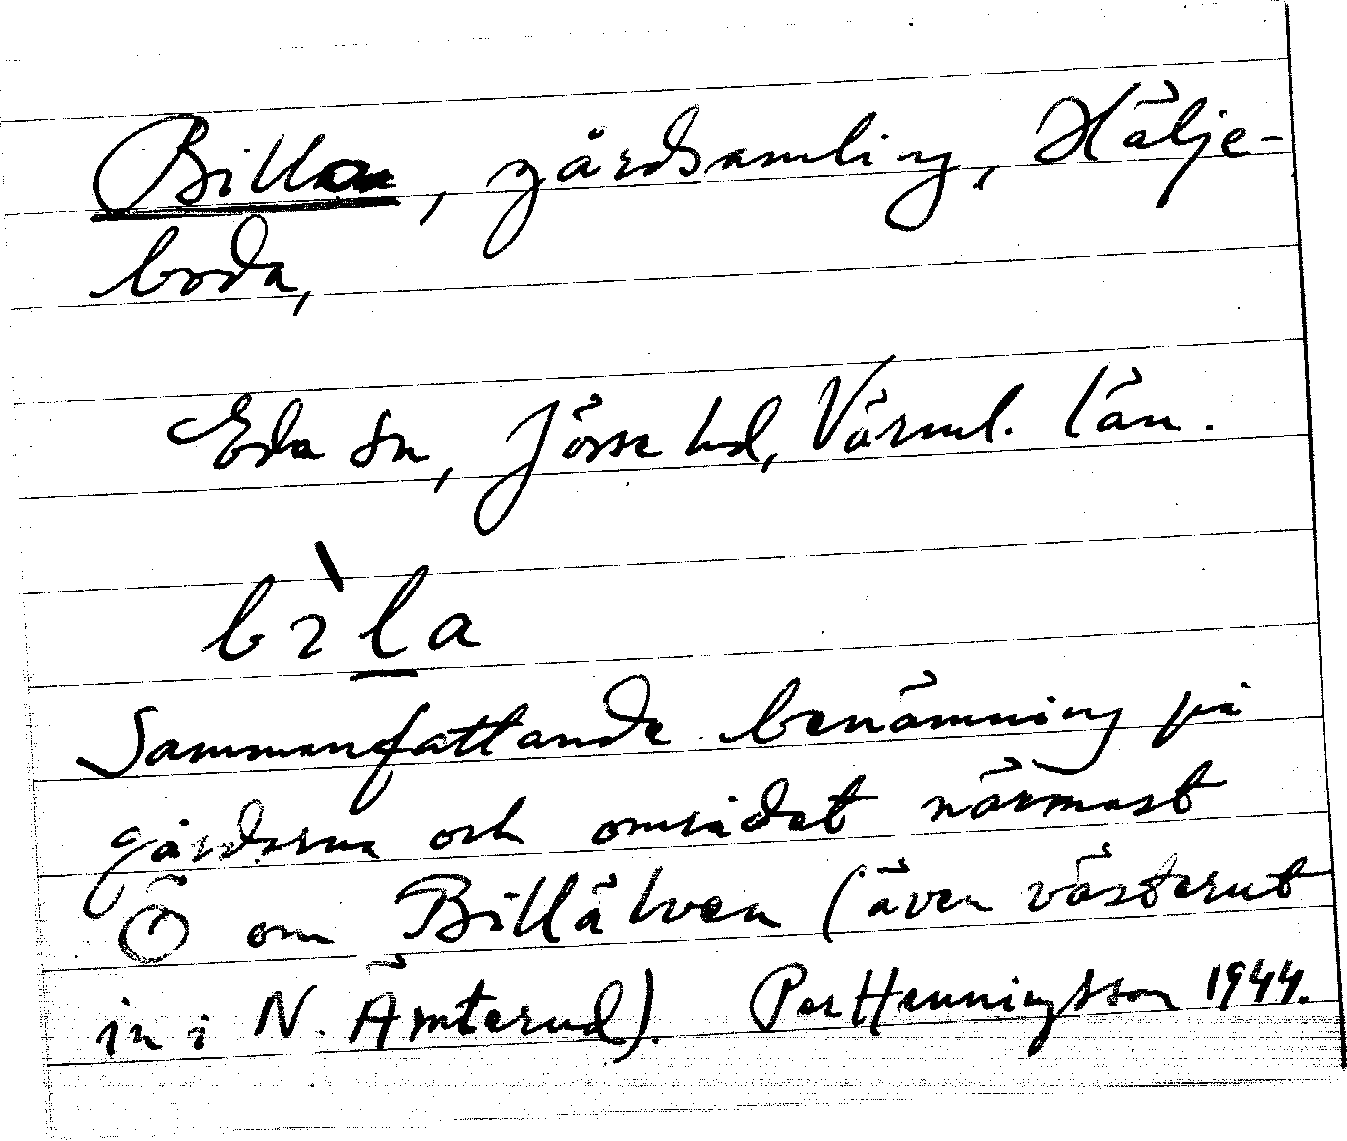 Billa, gårdsamling, Hälje-
boda,
Eda sn, Jösse hd, Värml. län.
bìla
Sammanfattande benämning på
gårdarna och området närmast
Ö om Billälven (även västerut
in i N. Ämterud). Per Henningsson 1944.